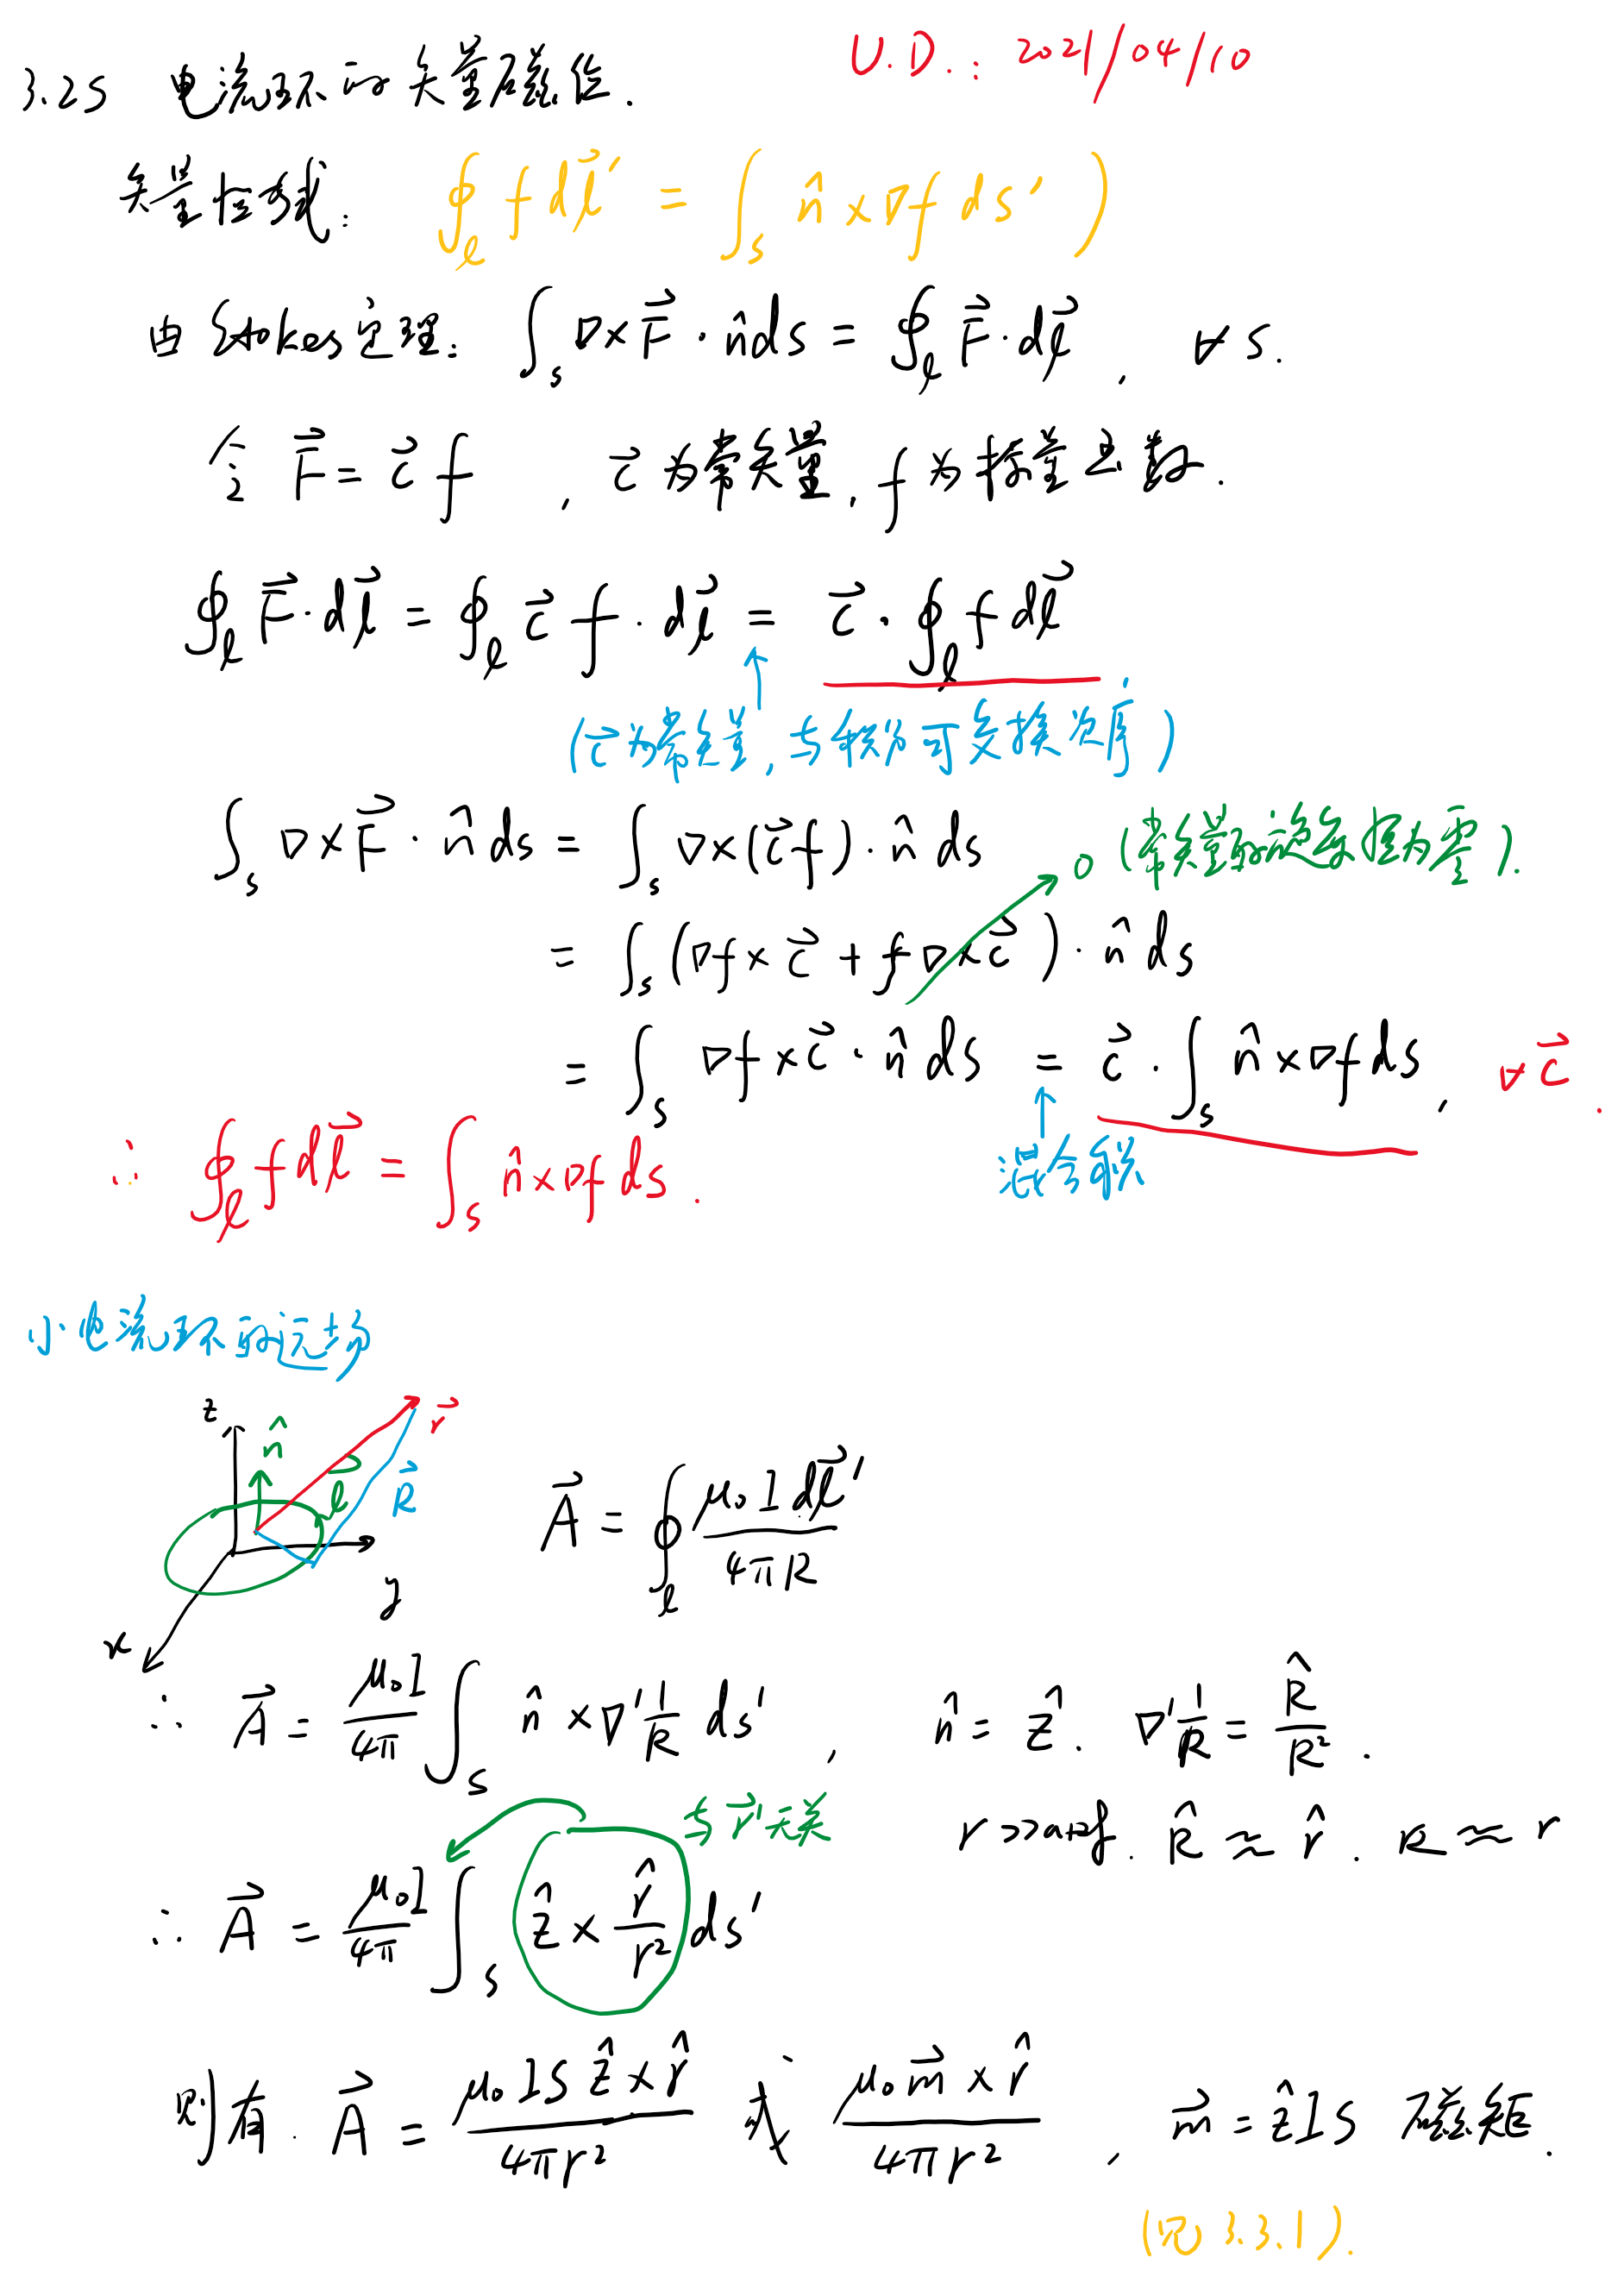 3.25 电流环的矢量磁位.
U.D.: 2021/04/10
矢量恒等式: ∮_l f dl⃗' = ∫_s n̂×∇f ds' )
由Stokes定理: ∫_s ∇×F⃗·n̂ds = ∮_l F⃗·dl⃗, ∀s.
令 F⃗=c⃗f , c⃗为常矢量, f为标量函数.
∮_l F⃗·dl⃗ = ∮_l c⃗f·dl⃗ = c⃗·∮_l f dl⃗
(c⃗为常矢量,与积分可交换次序)
∫_s ∇×F⃗·n̂ds = ∫_s ∇×(c⃗f)·n̂ds
0 (常矢量的旋度恒为零).
= ∫_s (∇f×c⃗+f∇×c⃗)·n̂ds
= ∫_s ∇f×c⃗·n̂ds = c⃗·∫_s n̂×∇f ds, ∀c⃗.
混合积
∴ ∮_l f dl⃗ = ∫_s n̂×∇f ds.
小电流环的远场
z n̂ l⃗ r⃗ R⃗ y x
A⃗ = ∮_l μ₀I dl⃗' / 4πR
∴ A⃗ = μ₀I/4π ∫_s n̂×∇'1/R ds', n̂=ẑ. ∇'1/R = R̂/R².
与r⃗'无关
r>>a时. R̂≈r̂. R≈r
∴ A⃗ = μ₀I/4π ∫_s ẑ×r̂/r² ds'
则有. A⃗ = μ₀IS ẑ×r̂ / 4πr² 或 μ₀m⃗×r̂ / 4πr² , m⃗=ẑIS 磁矩.
(见3.3.1).